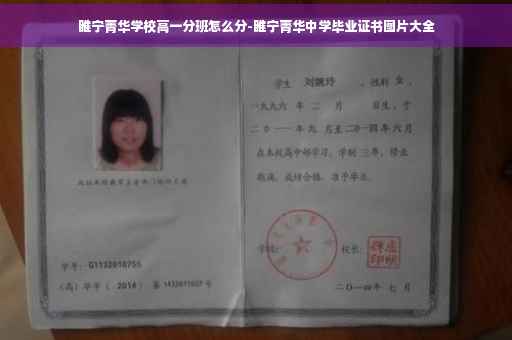 睢宁菁华学校高一分班怎么分-睢宁菁华中学毕业证书图片大全
学生 刘婉玲 ，性别 女 ，
一九九六 年 二 月 日生，于
二〇一一 年 九 月至 二〇一四 年 六 月
在本校高中部学习，学制 三 年，修业
期满，成绩合格，准予毕业。
学号： G1132010755
(高) 毕字 ( 2014 ) 第 1432011607 号
学校：
校长：
二〇一四年 七 月